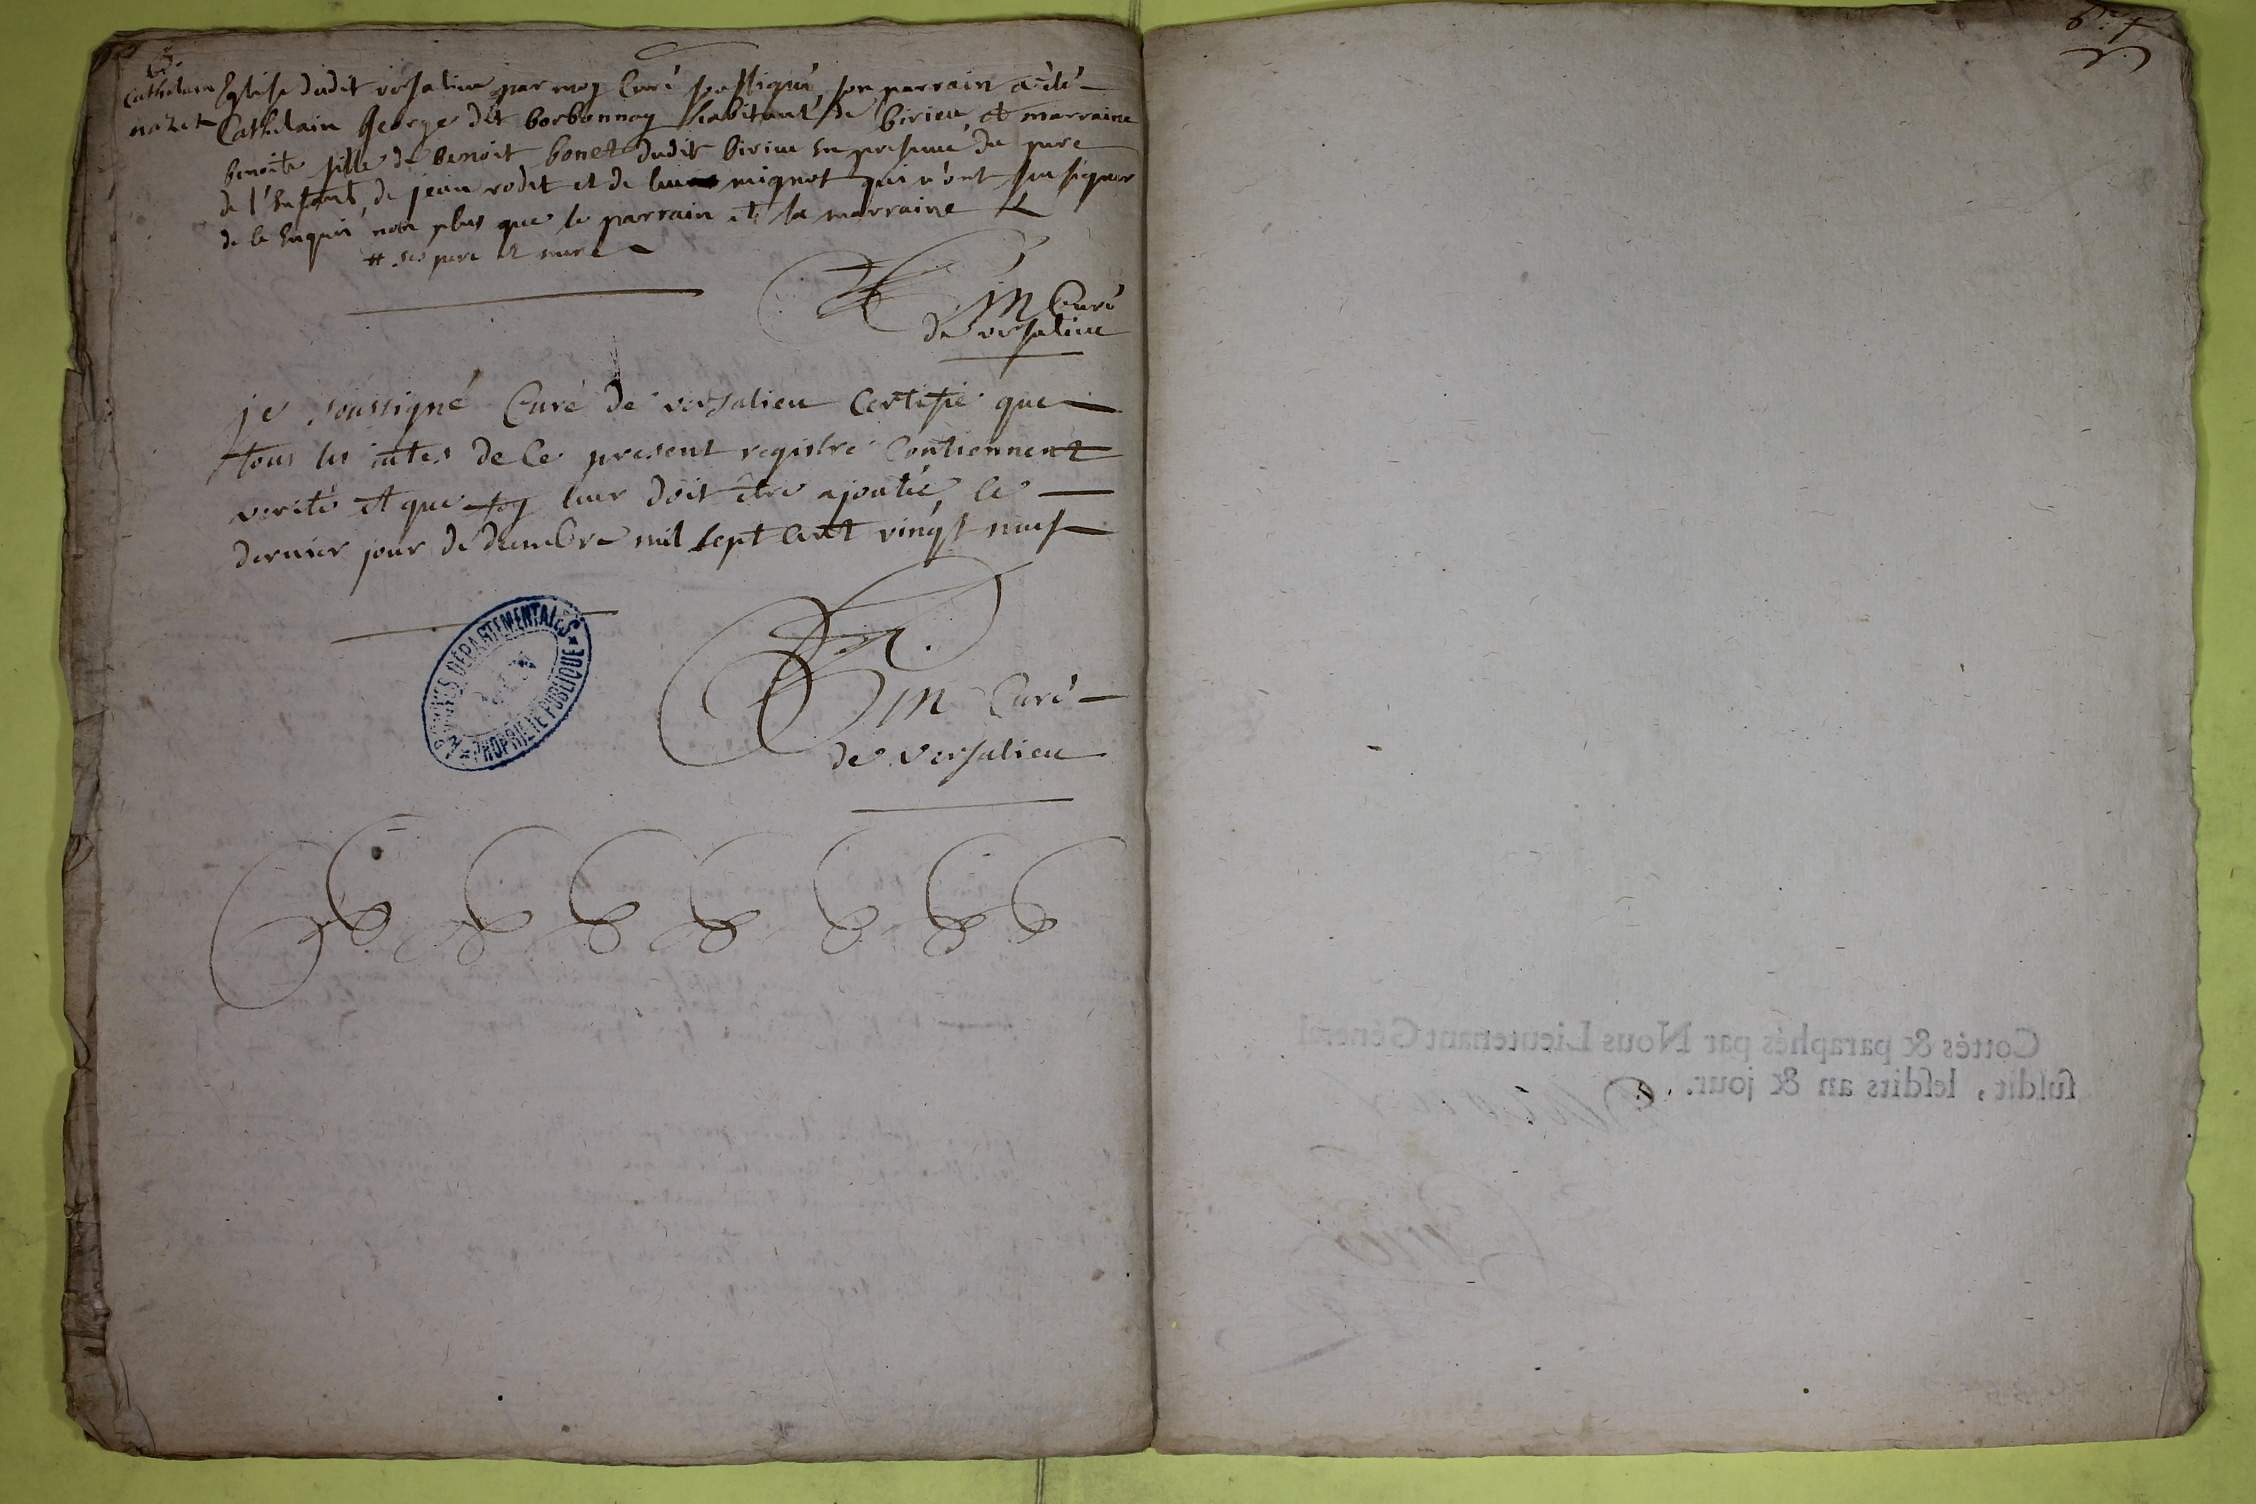 B.
Cathelain
nazet
Eglise dudit versalieu par moy Curé soussigné, son parrain a été
Cathelain george dit borbonnoy habitant de birieu et marraine
benoite fille de benoit bonet dudit birieu en presence du pere
de l'enfant, de jean rodet et de mignot qui n'ont su signer
de ce enquis non plus que le parrain et la marraine #
# ses pere et mere
Curé
de versalieu
je soussigné Curé de versalieu Certifie que
tous les actes de Ce present registre Contiennent
verité et que foy leur doit être ajoutée, Ce
dernier jour de decembre mil sept cent vingt neuf
ARCHIVES DÉPARTEMENTALES
PROPRIÉTÉ PUBLIQUE
Curé
de versalieu
Cottés & paraphés par Nous Lieutenant Géneral
susdit, lesdits an & jour.